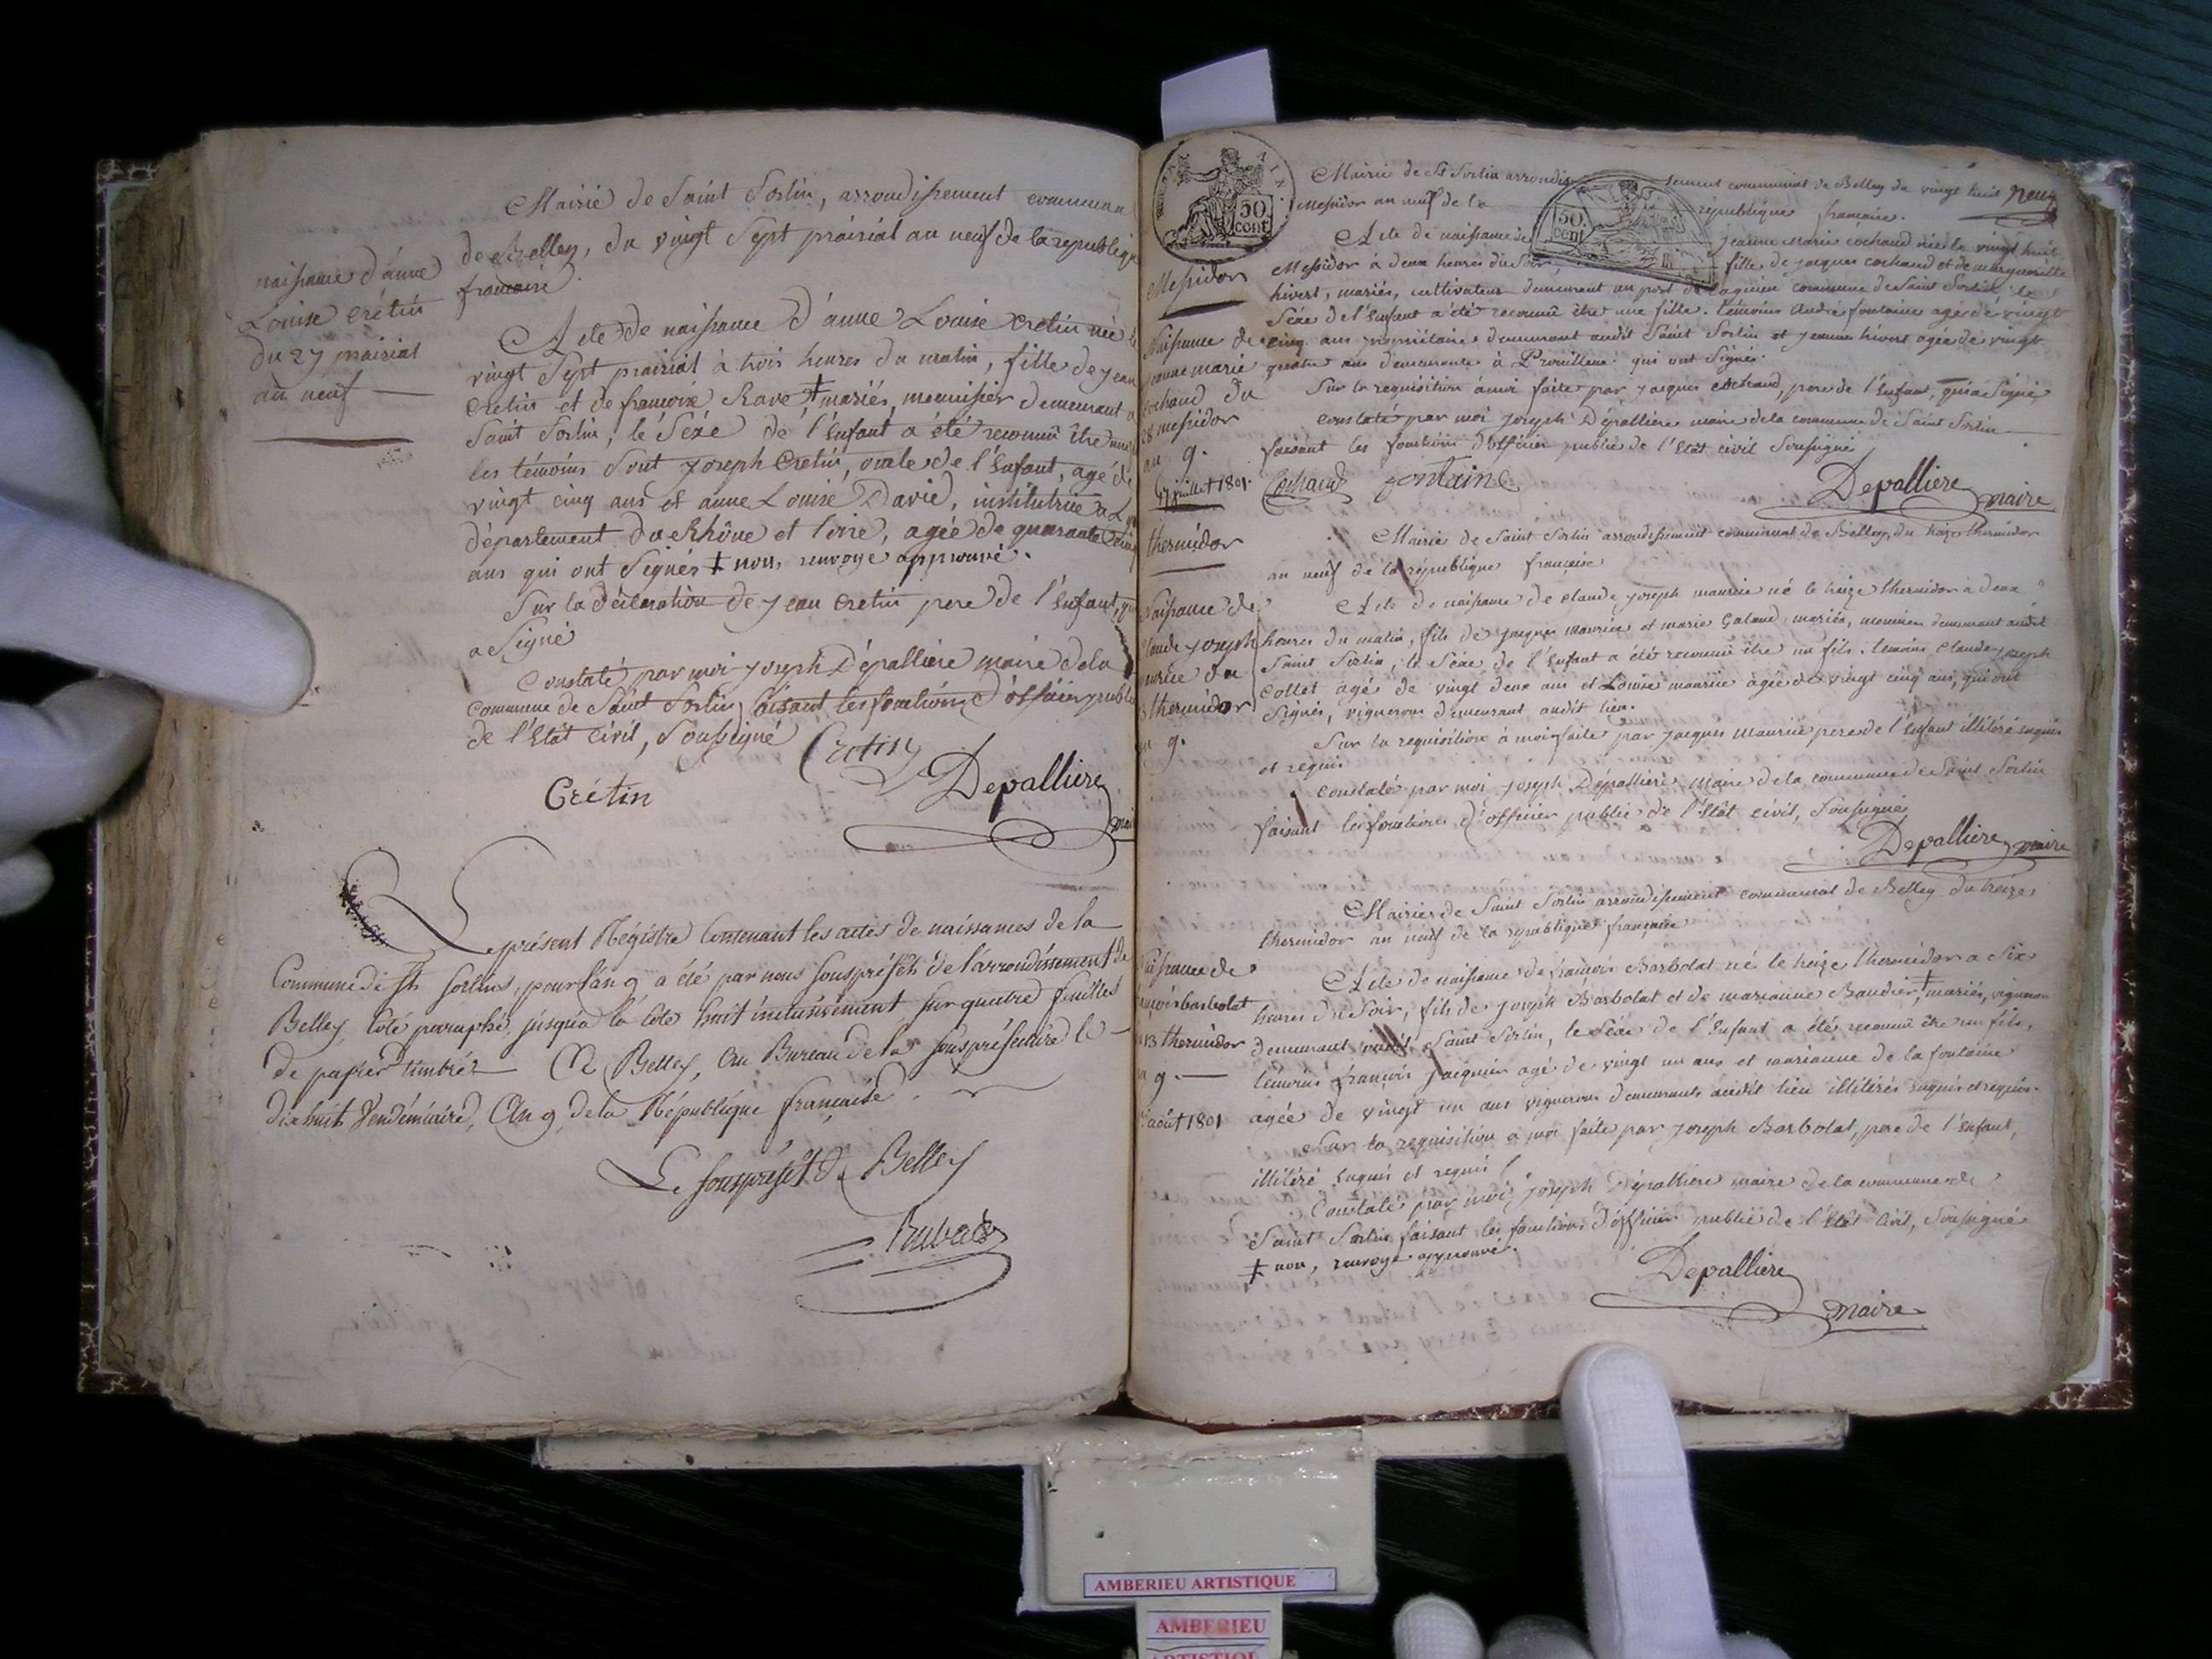 Mairie de Saint Sorlin, arrondissement communal
de Belley, du vingt sept prairial an neuf de la republique
francaise
naissance d'anne
Louise crétin
du 27 prairial
an neuf
Acte de naissance d'anne Louise cretin née le
vingt sept prairial à trois heures du matin, fille de jean
cretin et de francoise Rave ‡ mariés, meunisier demeurant a
Saint Sorlin, le Séxe de l'Enfant a été reconnu être une
les témoins sont joseph cretin, oncle de l'Enfant, agé de
vingt cinq ans et anne Louise David, institutrice a
département du Rhône et loire, agée de quarante cinq
ans qui ont Signés ‡ non, renvoye approuvé.
Sur la déclaration de jean cretin pere de l'Enfant, qui
a Signé
Constaté par moi joseph Dépalliere maire de la
commune de Saint Sorlin, faisant les fonctions d'officier public
de l'Etat civil, Soussigné
Cretin
Crétin
Depalliere
maire
Le présent Régistre Contenant les actes de naissances de la
Commune de St Sorlins, pour l'an 9 a été par nous souspréfet de l'arrondissement de
Belley Coté paraphé, jusqu'à la Cote huit inclusivement, sur quatre feuilles
de papier timbrée A Belley, au Bureau de la souspréfecture le
dix huit Vendémiaire, An 9 de la République française.
Le souspréfet de Belley
AIN
50
cent
50
cent
Mairie de St Sorlin arrondissement communal de Belley du vingt huit
neuf
Messidor an neuf de la république française.
Messidor
Acte de naissance de jeanne Marie cochaud née le vingt huit
Messidor à deux heures du Soir, fille de jacques cochaud et de marguerite
hivert, mariés, cultivateur demeurant au port de lagnieu commune de Saint Sorlin le
Séxe de l'Enfant a été reconnu être une fille. témoins André fontaine agé de vingt
cinq ans propriétaire demeurant audit Saint Sorlin et jeanne hivert agée de vingt
quatre ans demeurante à Proullieu qui ont Signés.
Naissance de
jeanne marie
cochaud du
28 messidor
an 9.
17 juillet 1801.
Sur la requisition à moi faite par jacques cochaud, pere de l'Enfant, qui a Signé
constaté par moi joseph Dépalliere maire de la commune de Saint Sorlin
faisant les fonctions d'officier public de l'Etat civil Soussigné
Cochaud fontaine
Depalliere maire
thermidor
Mairie de Saint Sorlin arrondissement communal de Belley, du treize thermidor
an neuf de la republique française
Naissance de
claude joseph
maurice du
13 thermidor
an 9.
Acte de naissance de claude joseph maurice né le treize thermidor a deux
heures du matin, fils de jacques maurice et marie Galand mariés, demeurant audit
Saint Sorlin, le Séxe de l'Enfant a été reconnu être un fils. temoins claude joseph
Collet agé de vingt deux ans et Louise maurice agée de vingt cinq ans, qui ont
Signés, vignerons demeurant audit lieu.
Sur la requisition à moi faite par jacques maurice pere de l'Enfant illitéré enquis
et requis
constaté par moi joseph Dépalliere Maire de la commune de Saint Sorlin
faisant les fonctions d'officier public de l'Etat civil, Soussigné
Depalliere maire
Mairie de Saint Sorlin arrondissement communal de Belley du treize
thermidor an neuf de la republique française
Naissance de
françois barbolat
du 13 thermidor
an 9.
août 1801
Acte de naissance de françois Barbolat né le treize thermidor a Six
heures du Soir, fils de joseph Barbolat et de marianne Baudier ‡ mariés, vigneron
demeurant audit Saint Sorlin, le Séxe de l'Enfant a été reconnu être un fils,
témoins françois jacquin agé de vingt un ans et marianne de la fontaine
agée de vingt un ans vignerons demeurants audit lieu illitérés enquis et requis.
Sur la requisition a moi faite par joseph Barbolat, pere de l'Enfant,
illitéré enquis et requis
Constaté par moi joseph Dépalliere maire de la commune de
Saint Sorlin faisant les fonctions d'officier public de l'Etat Civil, Soussigné
‡ non, renvoye approuvé.
Depalliere
maire
AMBERIEU ARTISTIQUE
AMBERIEU
ARTISTIQUE